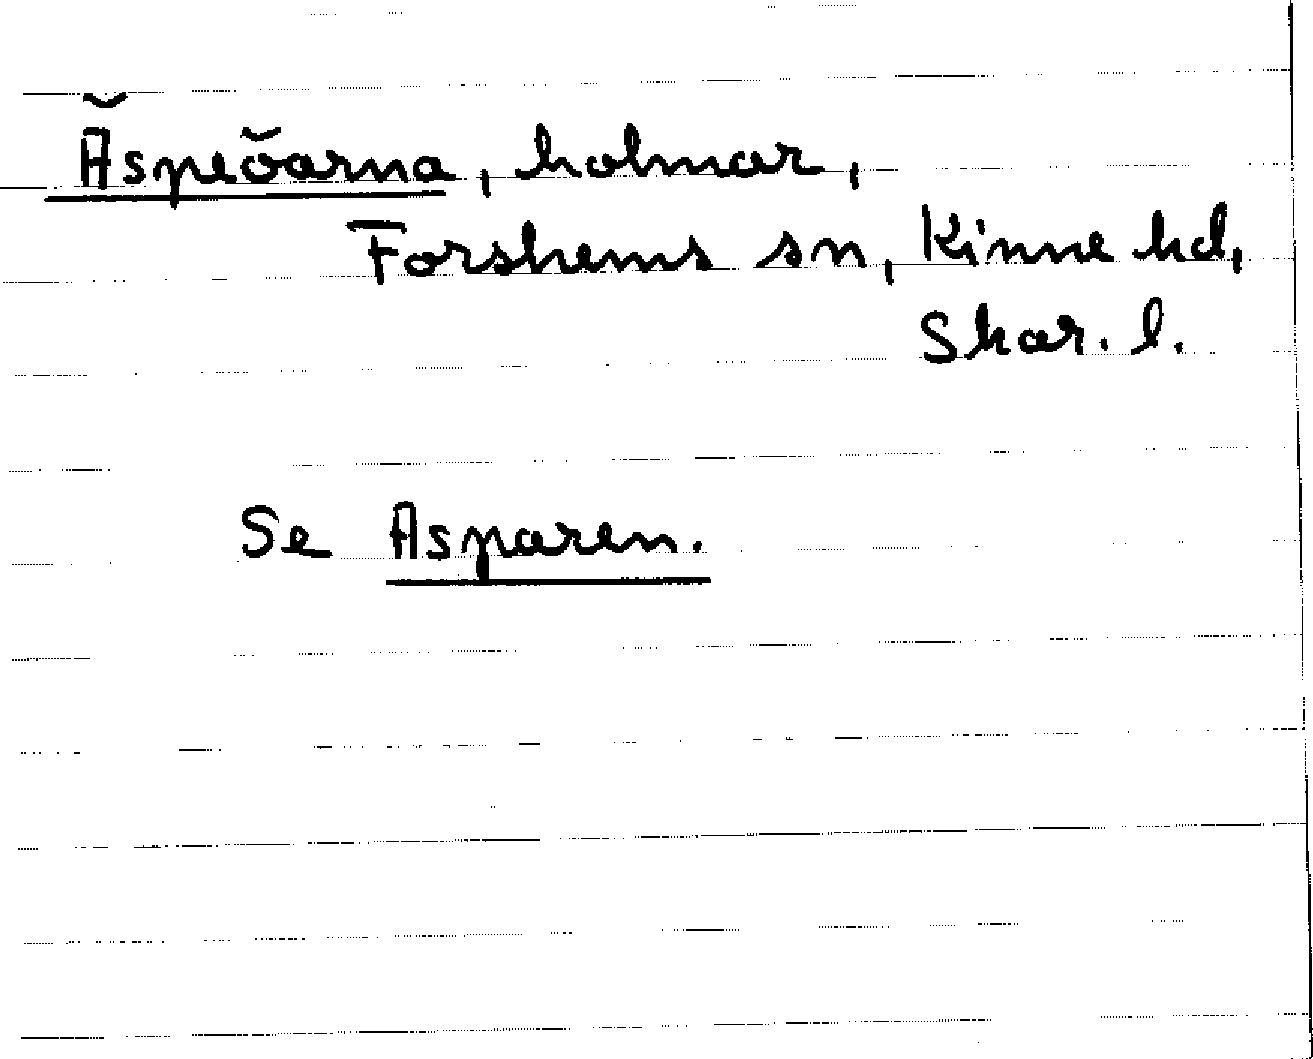 Äspeöarna, holmar,
Forshems sn, Kinne hd,
Skar. l.
Se Asparen.